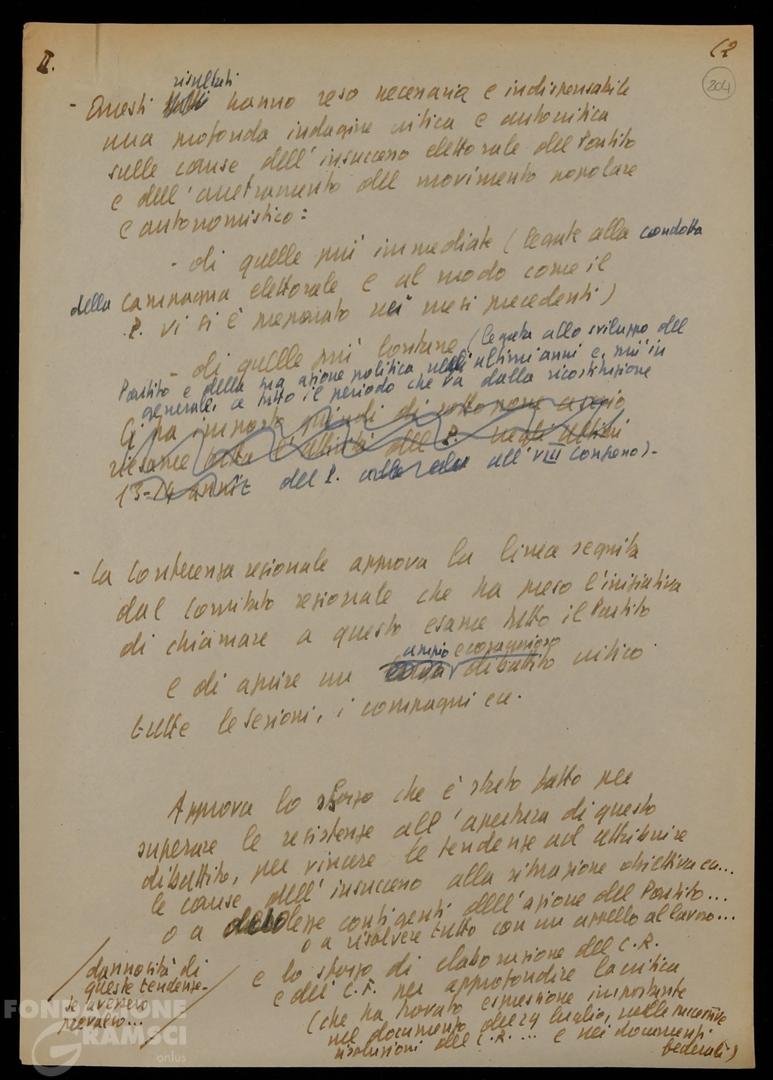 II.
(2
204
risultati
- Questi hanno reso necessaria e indispensabile
una profonda indagine critica e autocritica
sulle cause dell'insuccesso elettorale del Partito
e dell'arretramento del movimento popolare
e autonomistico:
- di quelle più immediate (legate alla condotta
della campagna elettorale e al modo come il
P. vi si è preparato nei mesi precedenti)
- di quelle più lontane (legate allo sviluppo del
Partito e della sua azione politica negli ultimi anni e, più in
generale, a tutto il periodo che va dalla ricostituzione
Ci ha imposto quindi di sottoporre
riesame l'attività del P. negli ultimi
13-14 anni del P. all'VIII Congresso).
- La Conferenza regionale approva la linea seguita
dal Comitato regionale che ha preso l'iniziativa
di chiamare a questo esame tutto il Partito
ampio e coraggioso
e di aprire un dibattito critico
tutte le sezioni, i compagni ecc.
Approva lo sforzo che è stato fatto per
superare le resistenze all'apertura di questo
dibattito, per vincere le tendenze ad attribuire
le cause dell'insuccesso alla situazione obiettiva ecc...
o a debolezze contigenti dell'azione del Partito...
o a risolvere tutto con un appello al lavoro...
e lo sforzo di elaborazione del C.R.
e dei C.F. per approfondire la critica
(che ha trovato espressione importante
nel documento del 29 luglio, nelle successive
risoluzioni del C.R. ... e nei documenti
federali)
dannosità di
queste tendenze
se avessero
prevalso...
FONDAZIONE
GRAMSCI
onlus